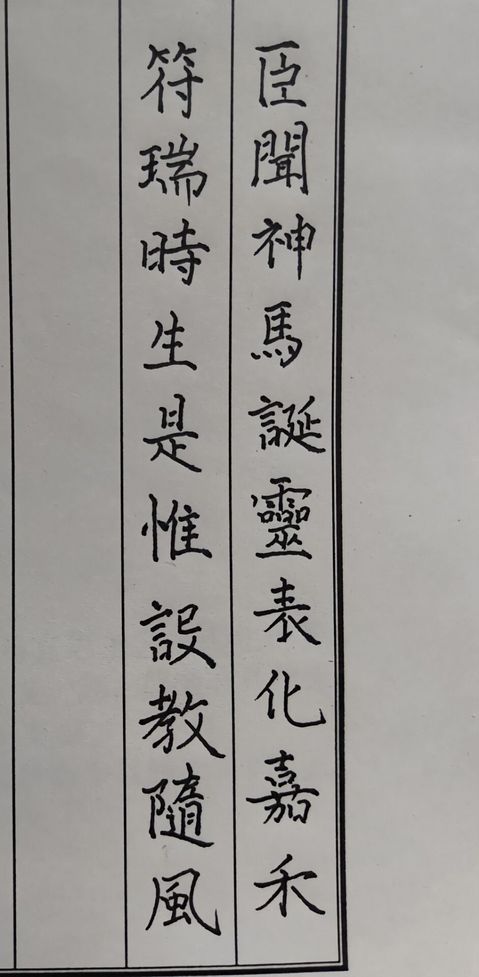 臣聞神馬誕靈表化嘉禾
符瑞時生是惟設教隨風